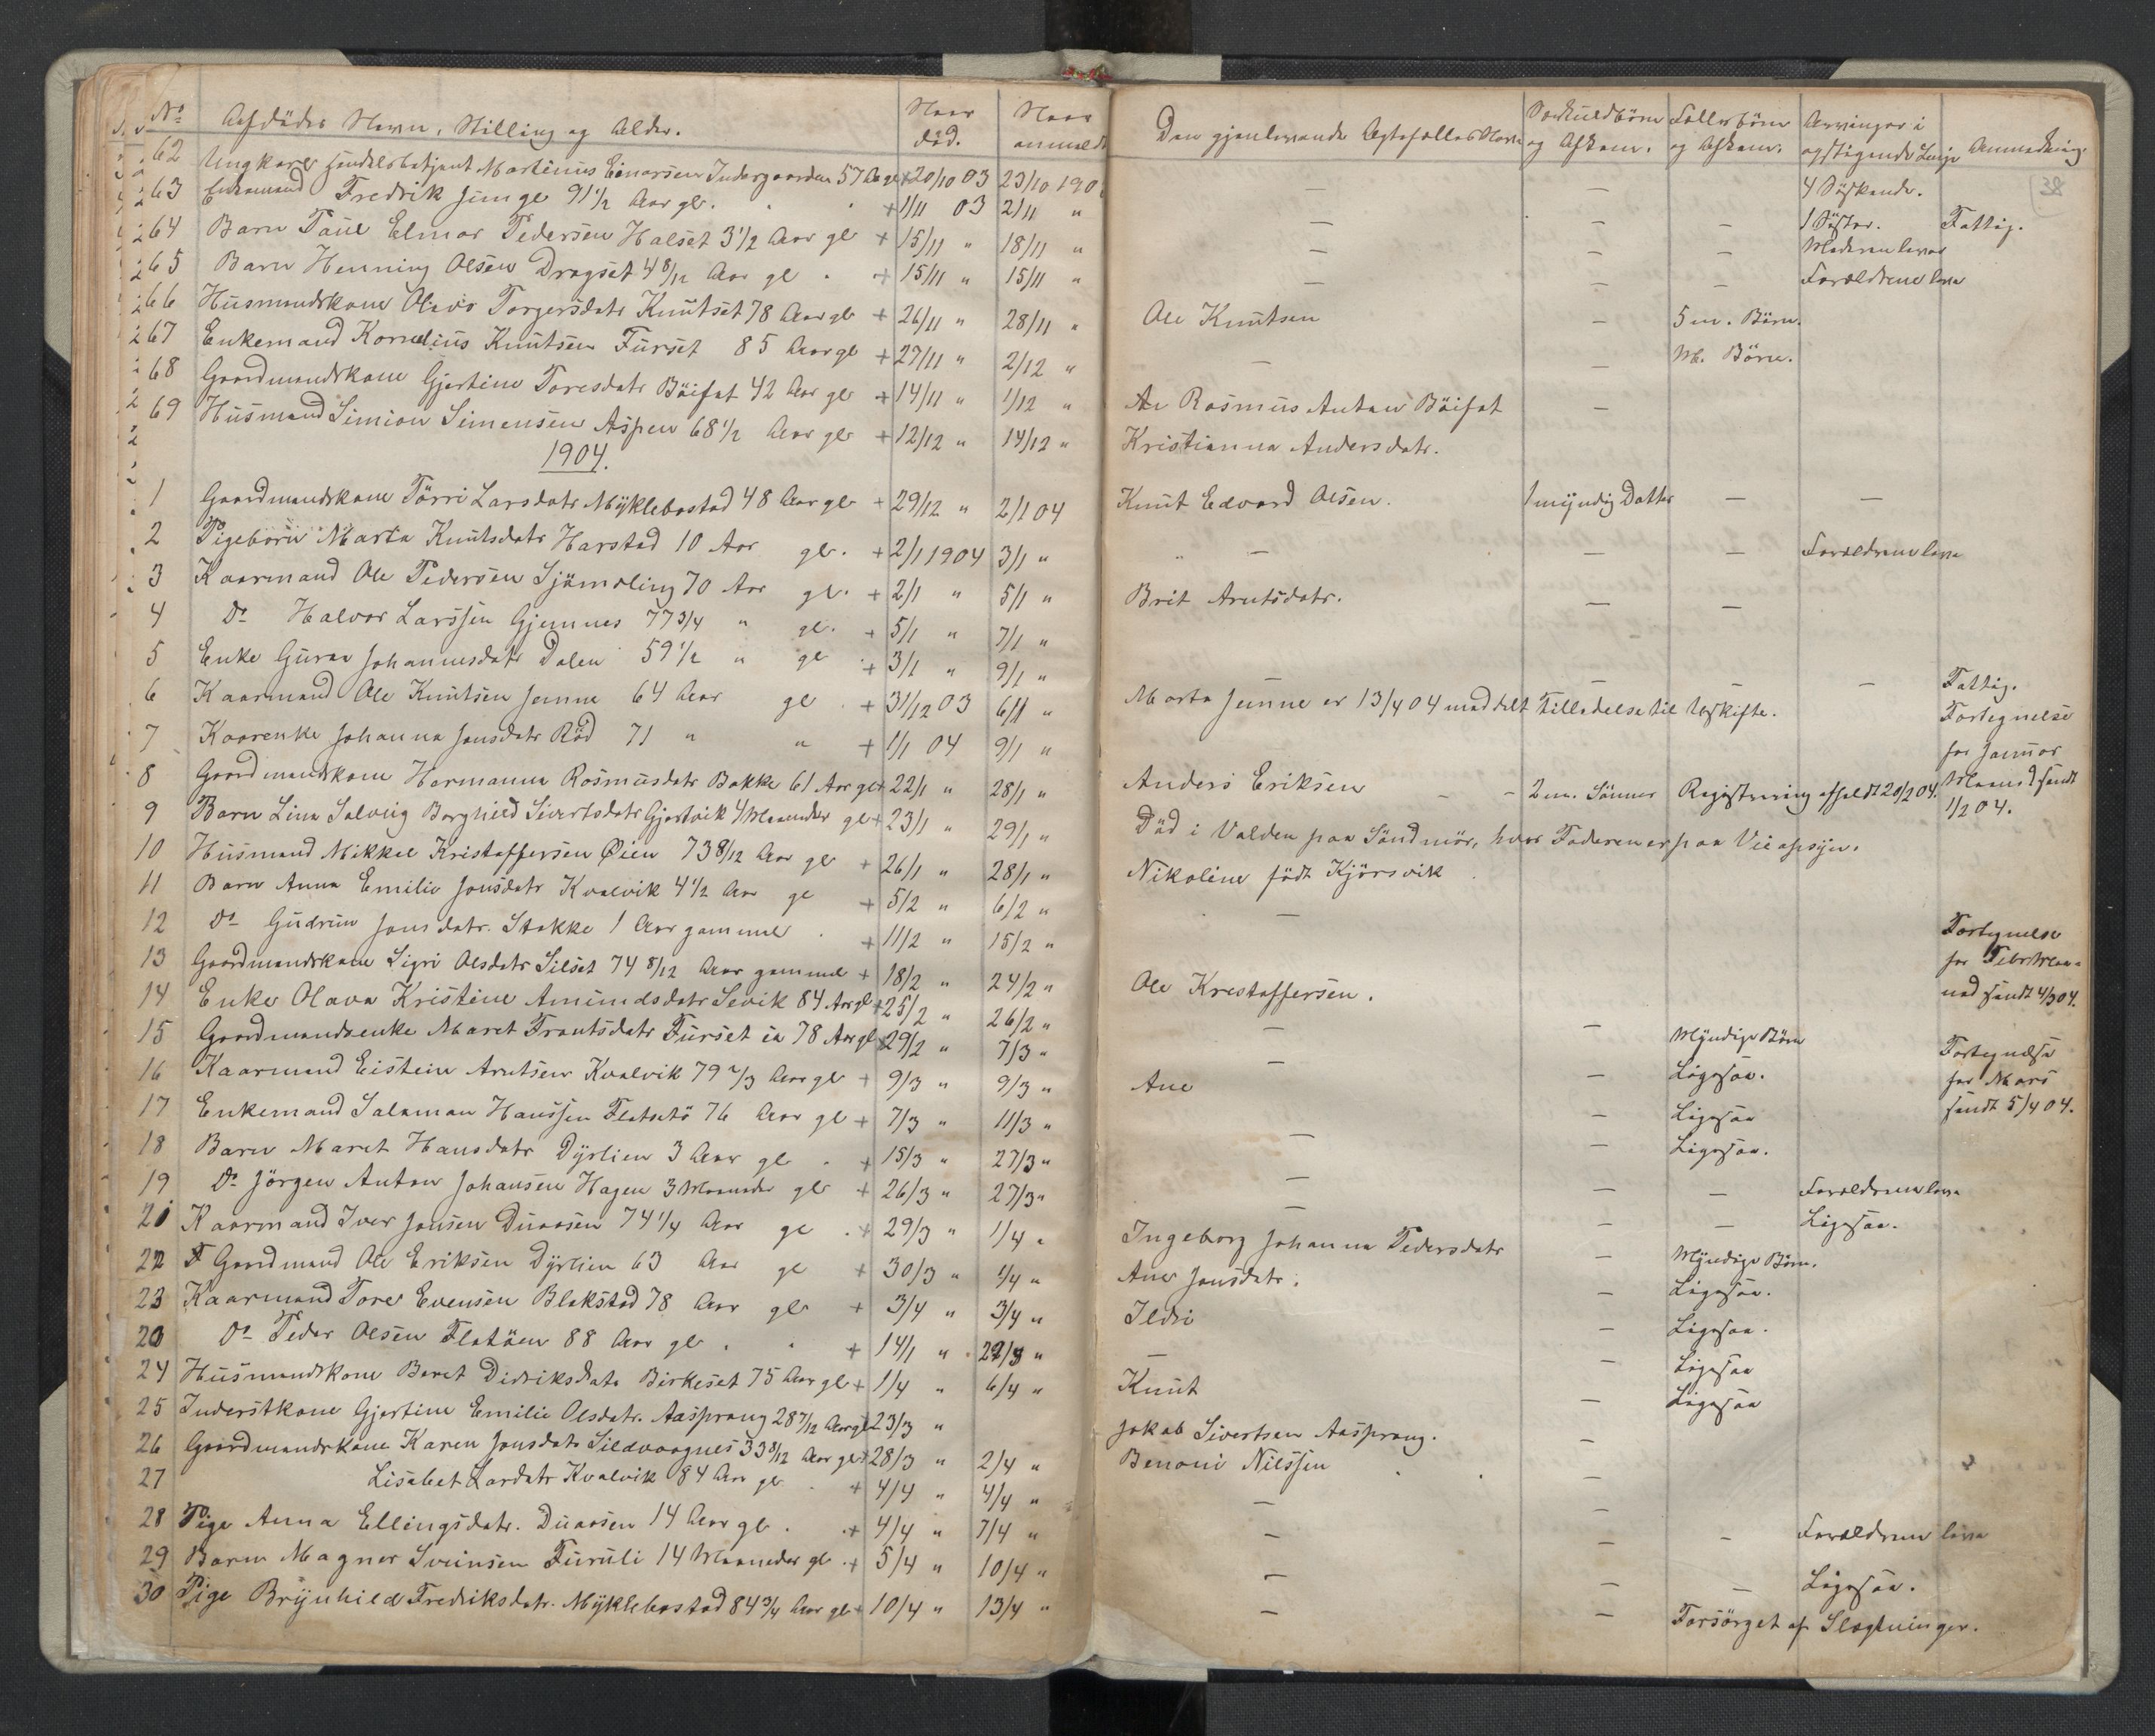 No Afdödes Navn, Stilling og Alder. Naar död. Naar anmeldt Den gjenlevende Ægtefælles Navn Særkuldbörn og Afkom. Fællesbörn og Afkom. Arvinger i opstigende Linje Anmerkning.
38
62 Ungkarl Handelsbetjent Martinus Einarsen Indergaarden 57 Aar gl + 20/10 03 23/10 190 — — 4 Söskende.
63 Enkemand Fredrik Junge 91 1/2 Aar gl. + 1/11 03 2/11 " — — — 1 Söster. Fattig.
64 Barn Paul Elmar Pedersen Halset 3 1/2 Aar gl + 15/11 " 18/11 " — — — Moderen lever
65 Barn Henning Olsen Dragset 4 8/12 Aar gl + 15/11 " 15/11 " — — — Forældrene leve
66 Husmandskone Olava Torgersdatr Knutset 78 Aar gl + 26/11 " 28/11 " Ole Knutsen — 5 m. Börn.
67 Enkemand Kornelius Knutsen Furset 85 Aar gl + 27/11 " 2/12 " — — M. Börn.
68 Gaardmandskone Gjertine Toresdatr Böifot 42 Aar gl + 14/11 " 1/12 " Rasmus Anton Böifot —
69 Husmand Simion Simensen Aspen 68 1/2 Aar gl + 12/12 " 14/12 " Kristianna Andersdatr.
1904.
1 Gaardmandskone Törri Larsdatr Myklebostad 48 Aar gl + 29/12 " 2/1 04 Knut Edvard Olsen. 1 myndig Datter — —
2 Pigebarn Marta Knutsdatr Harstad 10 Aar gl. + 2/1 1904 3/1 " — — — Forældrene leve
3 Kaarmand Ole Pedersen Sjömæling 70 Aar gl. + 2/1 " 5/1 " Brit Arntsdatr. — —
4 Do Halvor Larssen Gjemnes 77 3/4 " gl. + 5/1 " 7/1 "
5 Enke Guran Johannesdatr Dalen 59 1/2 " gl + 3/1 " 9/1 " — — — Fattig.
6 Kaarmand Ole Knutsen Jenne 64 Aar gl + 31/12 03 6/1 " Marta Jenne er 13/4 04 meddelt Tilladelse til Uskifte. Fortegnelse
7 Kaarenke Johanna Jonsdatr Röd 71 " " + 1/1 04 9/1 " for Januar
8 Gaardmandskone Hermanna Rasmusdatr Bakke 61 Aar gl + 22/1 " 28/1 " Anders Eriksen - - 2 m. Sönner Registrering afholdt 20/2 04. Maaned sendt
9 Barn Lina Solveig Borghild Sivertsdatr Gjertvik 4 Maaneder gl + 23/1 " 29/1 " Död i Volden paa Söndmör, hvor Faderen er paa Veiopsyn. 1/2 04.
10 Husmand Mikkel Kristoffersen Øien 73 8/12 Aar gl + 26/1 " 28/1 " Nikoline födt Kjörsvik
11 Barn Anna Emilie Jonsdatr Kvalvik 4 1/2 Aar gl + 5/2 " 6/2 " —
12 Do Gudrun Jonsdatr. Stokke 1 Aar gammel + 11/2 " 15/2 " Fortegnelse
13 Gaardmandskone Sigri Olsdatr Silset 74 8/12 Aar gammel + 18/2 " 24/2 " Ole Krestoffersen. for Febr Maa-
14 Enke Olava Kristine Amundsdatr Sevik 84 Aar gl + 25/2 " 26/2 " — — Myndige Börn ned sendt 4/3 04.
15 Gaardmandsenke Maret Trontsdatr Furset ca 78 Aar gl + 29/2 " 7/3 " — — Ligesaa. Fortegnelse
16 Kaarmand Eistein Arntsen Kvalvik 79 2/3 Aar gl + 9/3 " 9/3 " Ane — Ligesaa for Mars
17 Enkemand Salamon Hanssen Flatsetö 76 Aar gl + 7/3 " 11/3 " — — Ligesaa. sendt 5/4 04.
18 Barn Maret Hansdatr Dyrlien 3 Aar gl + 15/3 " 27/3 " — — — Forældrene leve
19 Do Jörgen Anton Johansen Hagen 3 Maaneder gl + 26/3 " 27/3 " — — — Ligesaa.
21 Kaarmand Iver Jonsen Duaasen 74 1/4 Aar gl + 29/3 " 1/4 " Ingeborg Johanna Pedersdatr — Myndige Börn.
22 F Gaardmand Ole Eriksen Dyrlien 63 Aar gl + 30/3 " 1/4 " Ane Jonsdatr. — Ligesaa.
23 Kaarmand Tore Evensen Blakstad 78 Aar gl + 3/4 " 3/4 " Ildri — Ligesaa.
20 Do Peder Olsen Flatöen 88 Aar gl + 14/1 " 29/3 " — — Ligesaa
24 Husmandskone Beret Didriksdatr Birkeset 75 Aar gl + 1/4 " 6/4 " Knut — Ligesaa
25 Inderstkone Gjertine Emilie Olsdatr. Aasprang 28 7/12 Aar gl 23/3 " Jakob Sivertsen Aasprang. —
26 Gaardmandskone Karen Jonsdatr Sildvaagnes 33 8/12 Aar gl + 28/3 " 2/4 " Benoni Nilssen —
27 Lisabet Lardatr Kvalvik 84 Aar gl + 4/4 " 4/4 " — —
28 Pige Anna Ellingsdatr. Duaasen 14 Aar gl. + 4/4 " 7/4 " — — - Forældrene leve
29 Barn Magner Sveinsen Furuli 14 Maaneder gl + 5/4 " 10/4 " — — — Ligesaa.
30 Pige Brynhild Fredriksdatr. Myklebostad 84 3/4 Aar gl + 10/4 " 13/4 " — — Forsörget af Slægtninger.